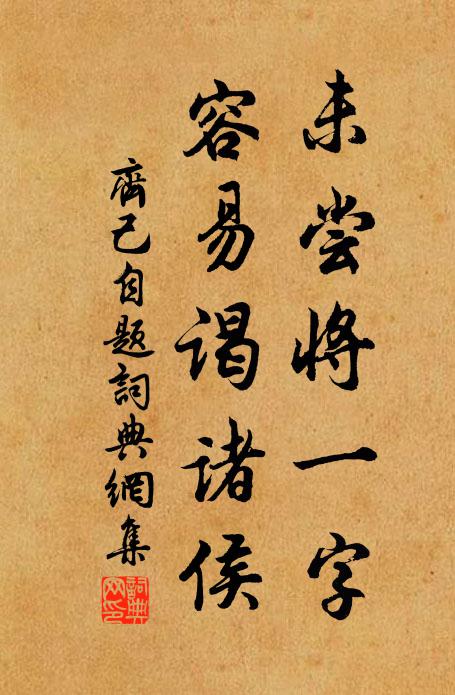 未尝将一字
容易谒诸侯
齊己自題詞典網集
詞典网印